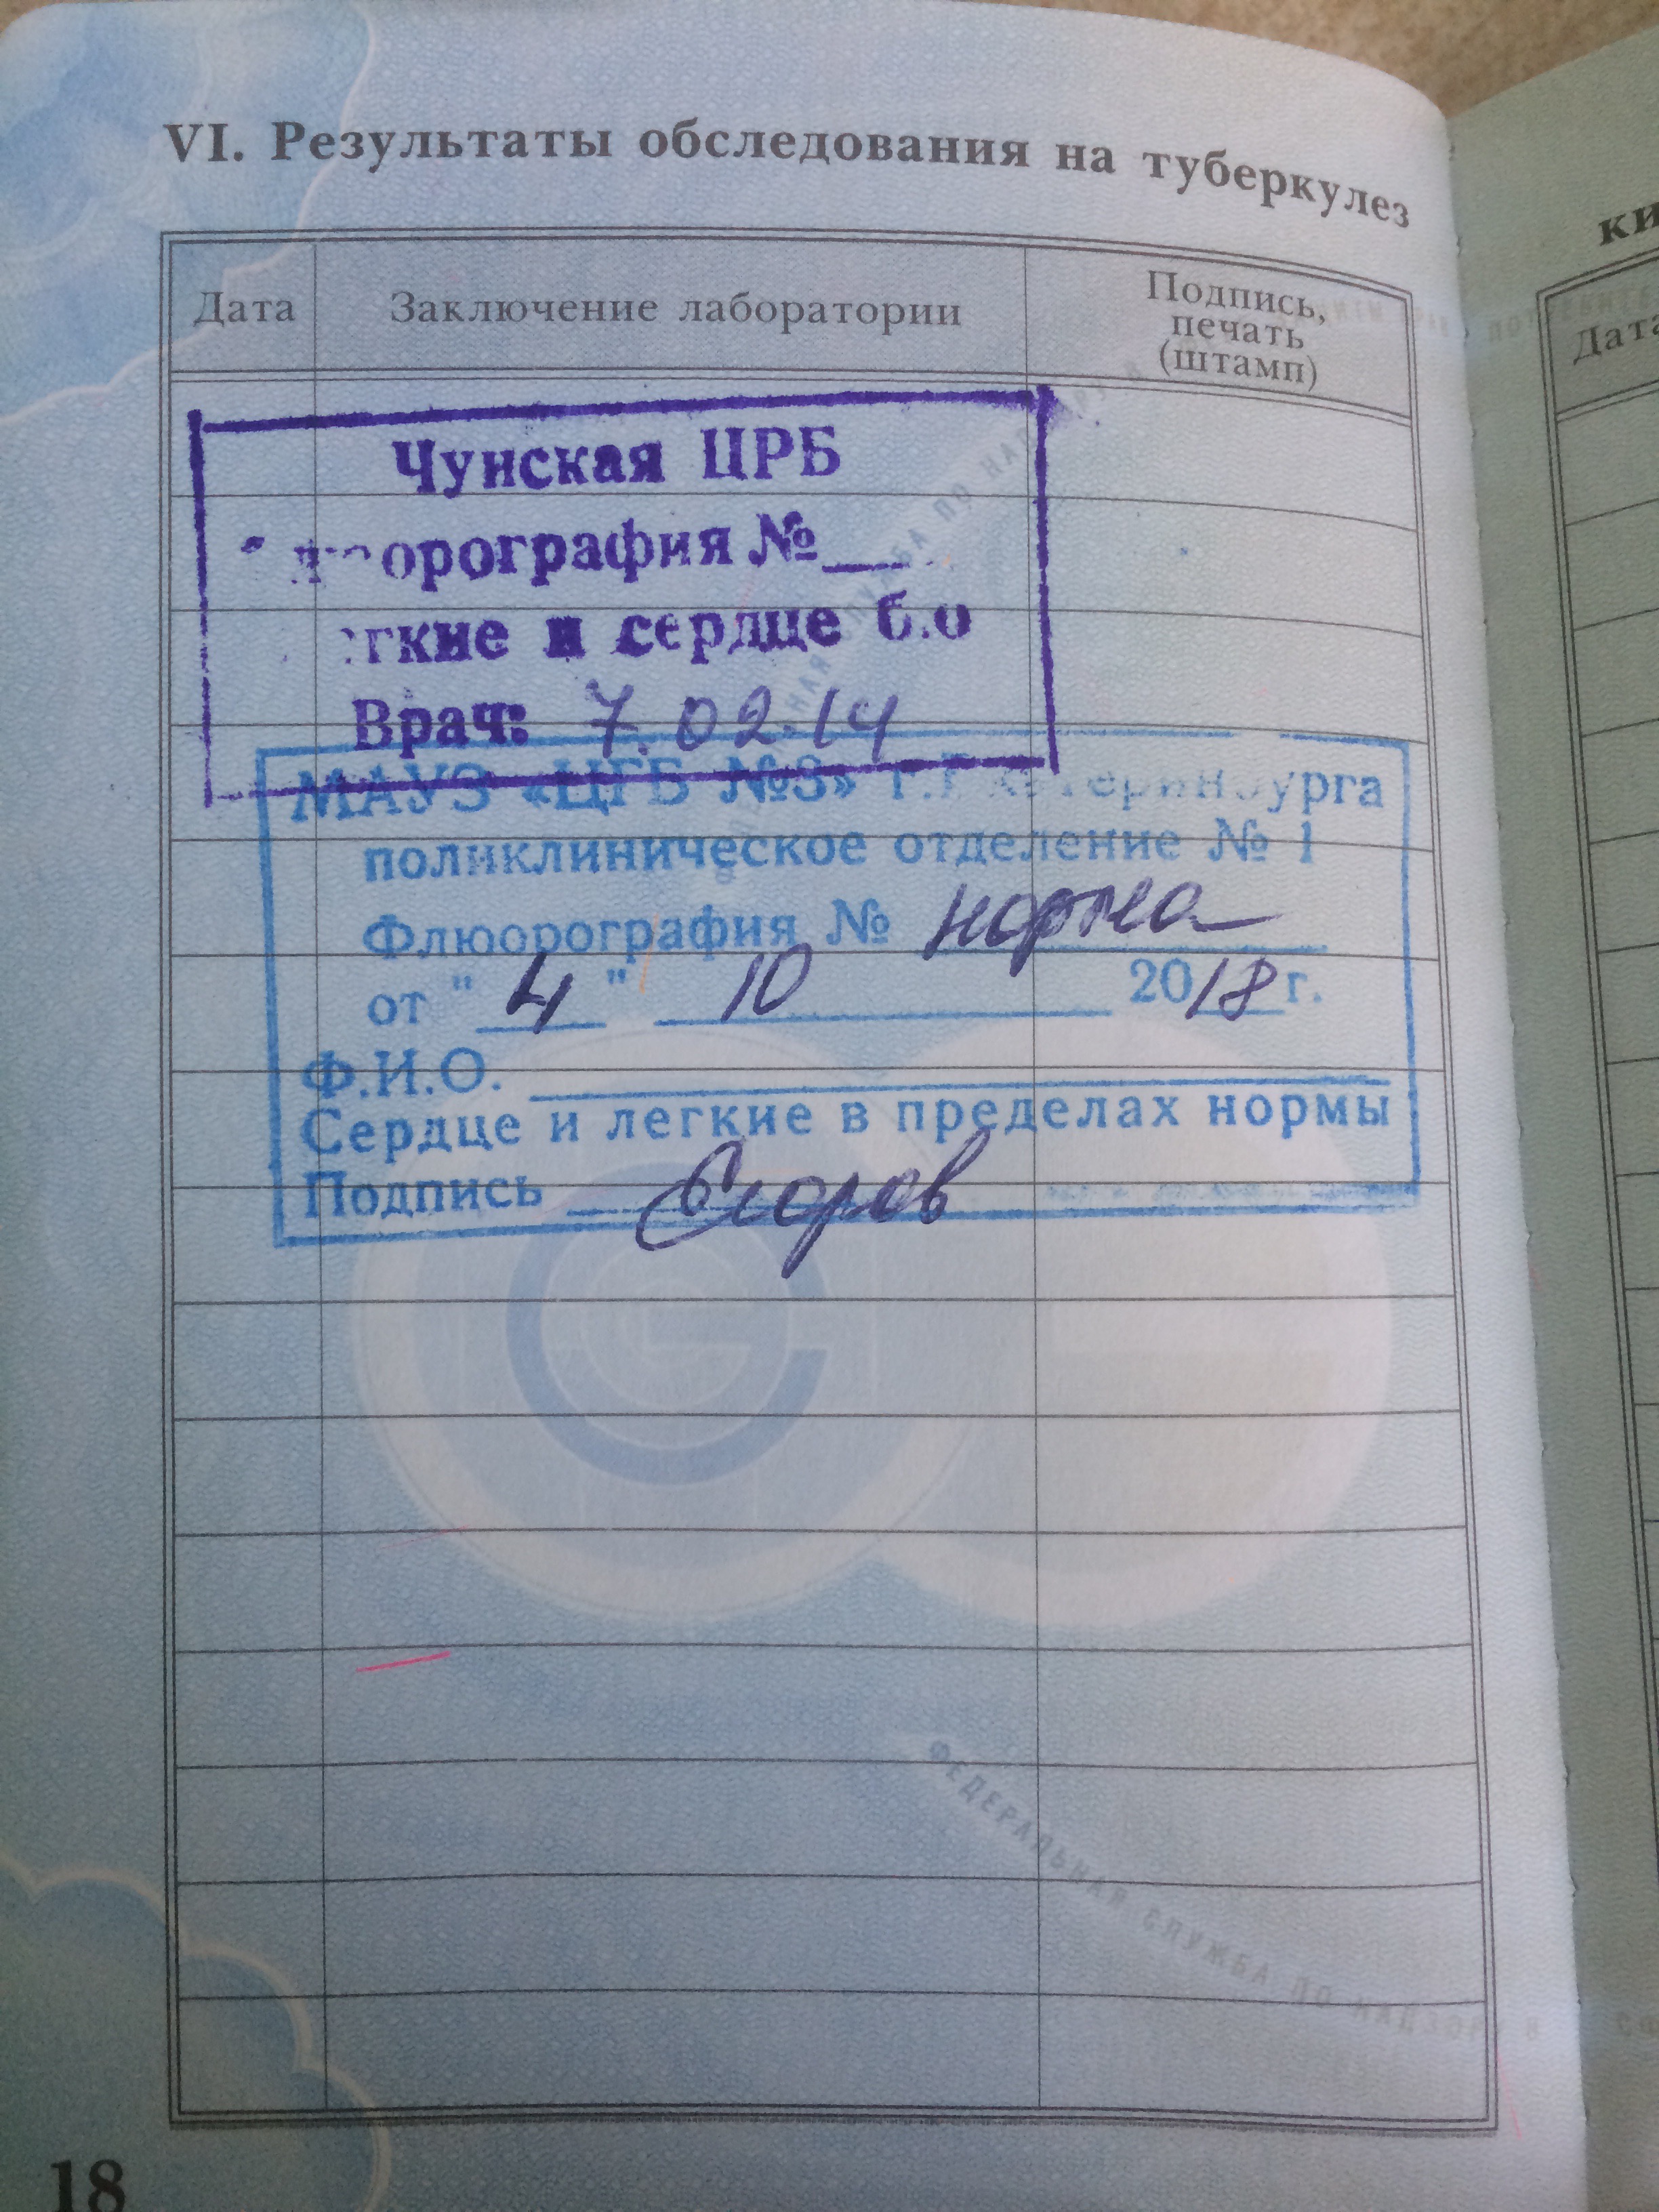 VI. Результаты обследования на туберкулез
Дата
Заключение лаборатории
Подпись,
печать
(штамп)
Чунская ЦРБ
орография №
гкие и сердце б.о
Врач: 7.02.14
МАУЗ «ЦГБ №3» г. Екатеринбурга
поликлиническое отделение № 1
Флюорография № норма
от " 4 " 10 2018 г.
Ф.И.О.
Сердце и легкие в пределах нормы
Подпись Егоров
ФЕДЕРАЛЬНАЯ СЛУЖБА ПО НАДЗОРУ В
18
ки
Дата